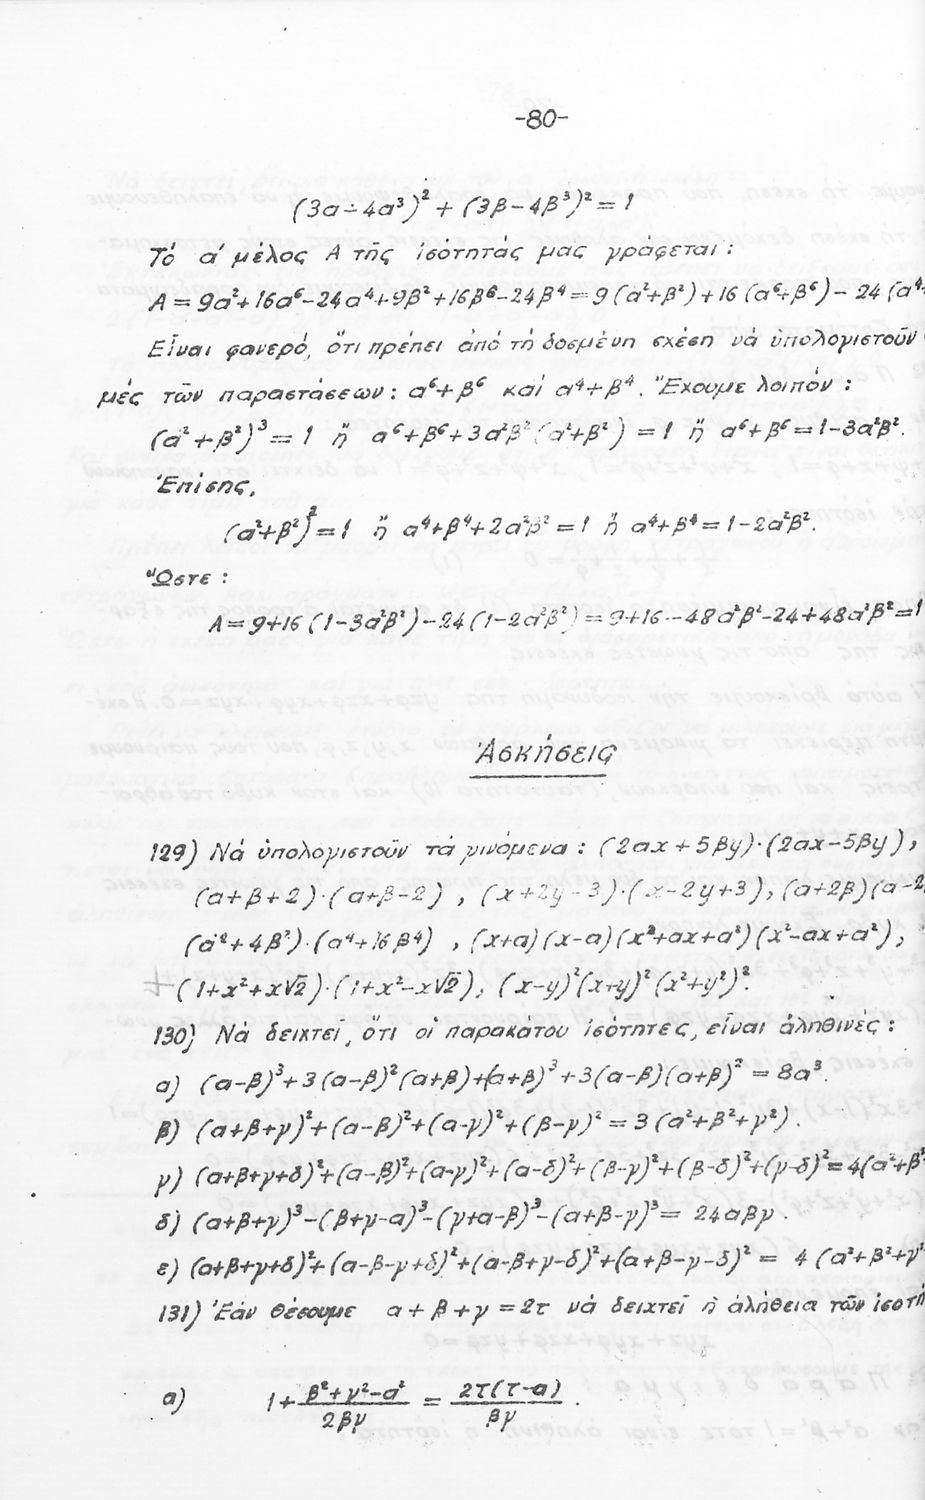 -80-
(3α-4α³)²+(3β-4β³)²=1
Τό α΄ μέλος Α τῆς ἰσότητάς μας γράφεται:
Α=9α²+16α⁶-24α⁴+9β²+16β⁶-24β⁴=9(α²+β²)+16(α⁶+β⁶)-24(α⁴+
Εἶναι φανερό, ὅτι πρέπει ἀπό τή δοσμένη σχέση νά ὑπολογιστοῦν
μές τῶν παραστάσεων: α⁶+β⁶ καί α⁴+β⁴. Ἔχουμε λοιπόν:
(α²+β²)³=1 ἤ α⁶+β⁶+3α²β²(α²+β²)=1 ἤ α⁶+β⁶=1-3α²β².
Ἐπίσης,
(α²+β²)²=1 ἤ α⁴+β⁴+2α²β²=1 ἤ α⁴+β⁴=1-2α²β².
Ὥστε:
Α=9+16(1-3α²β²)-24(1-2α²β²)=9+16-48α²β²-24+48α²β²=1
Ἀσκήσεις
129) Νά ὑπολογιστοῦν τά γινόμενα: (2αx+5βy)·(2αx-5βy),
(α+β+2)·(α+β-2), (x+2y-3)·(x-2y+3), (α+2β)(α-2
(α²+4β²)·(α⁴+16β⁴), (x+α)(x-α)(x²+αx+α²)(x²-αx+α²),
(1+x²+x√2)·(1+x²-x√2), (x-y)²(x+y)²(x²+y²)².
130) Νά δειχτεῖ, ὅτι οἱ παρακάτου ἰσότητες, εἶναι ἀληθινές:
α) (α-β)³+3(α-β)²(α+β)+(α+β)³+3(α-β)(α+β)²=8α³.
β) (α+β+γ)²+(α-β)²+(α-γ)²+(β-γ)²=3(α²+β²+γ²).
γ) (α+β+γ+δ)²+(α-β)²+(α-γ)²+(α-δ)²+(β-γ)²+(β-δ)²+(γ-δ)²=4(α²+β²
δ) (α+β+γ)³-(β+γ-α)³-(γ+α-β)³-(α+β-γ)³=24αβγ.
ε) (α+β+γ+δ)²+(α-β-γ+δ)²+(α-β+γ-δ)²+(α+β-γ-δ)²=4(α²+β²+γ²
131) Ἐάν θέσουμε α+β+γ=2τ νά δειχτεῖ ἡ ἀλήθεια τῶν ἰσοτή
α) 1+(β²+γ²-α²)/2βγ = 2τ(τ-α)/βγ.